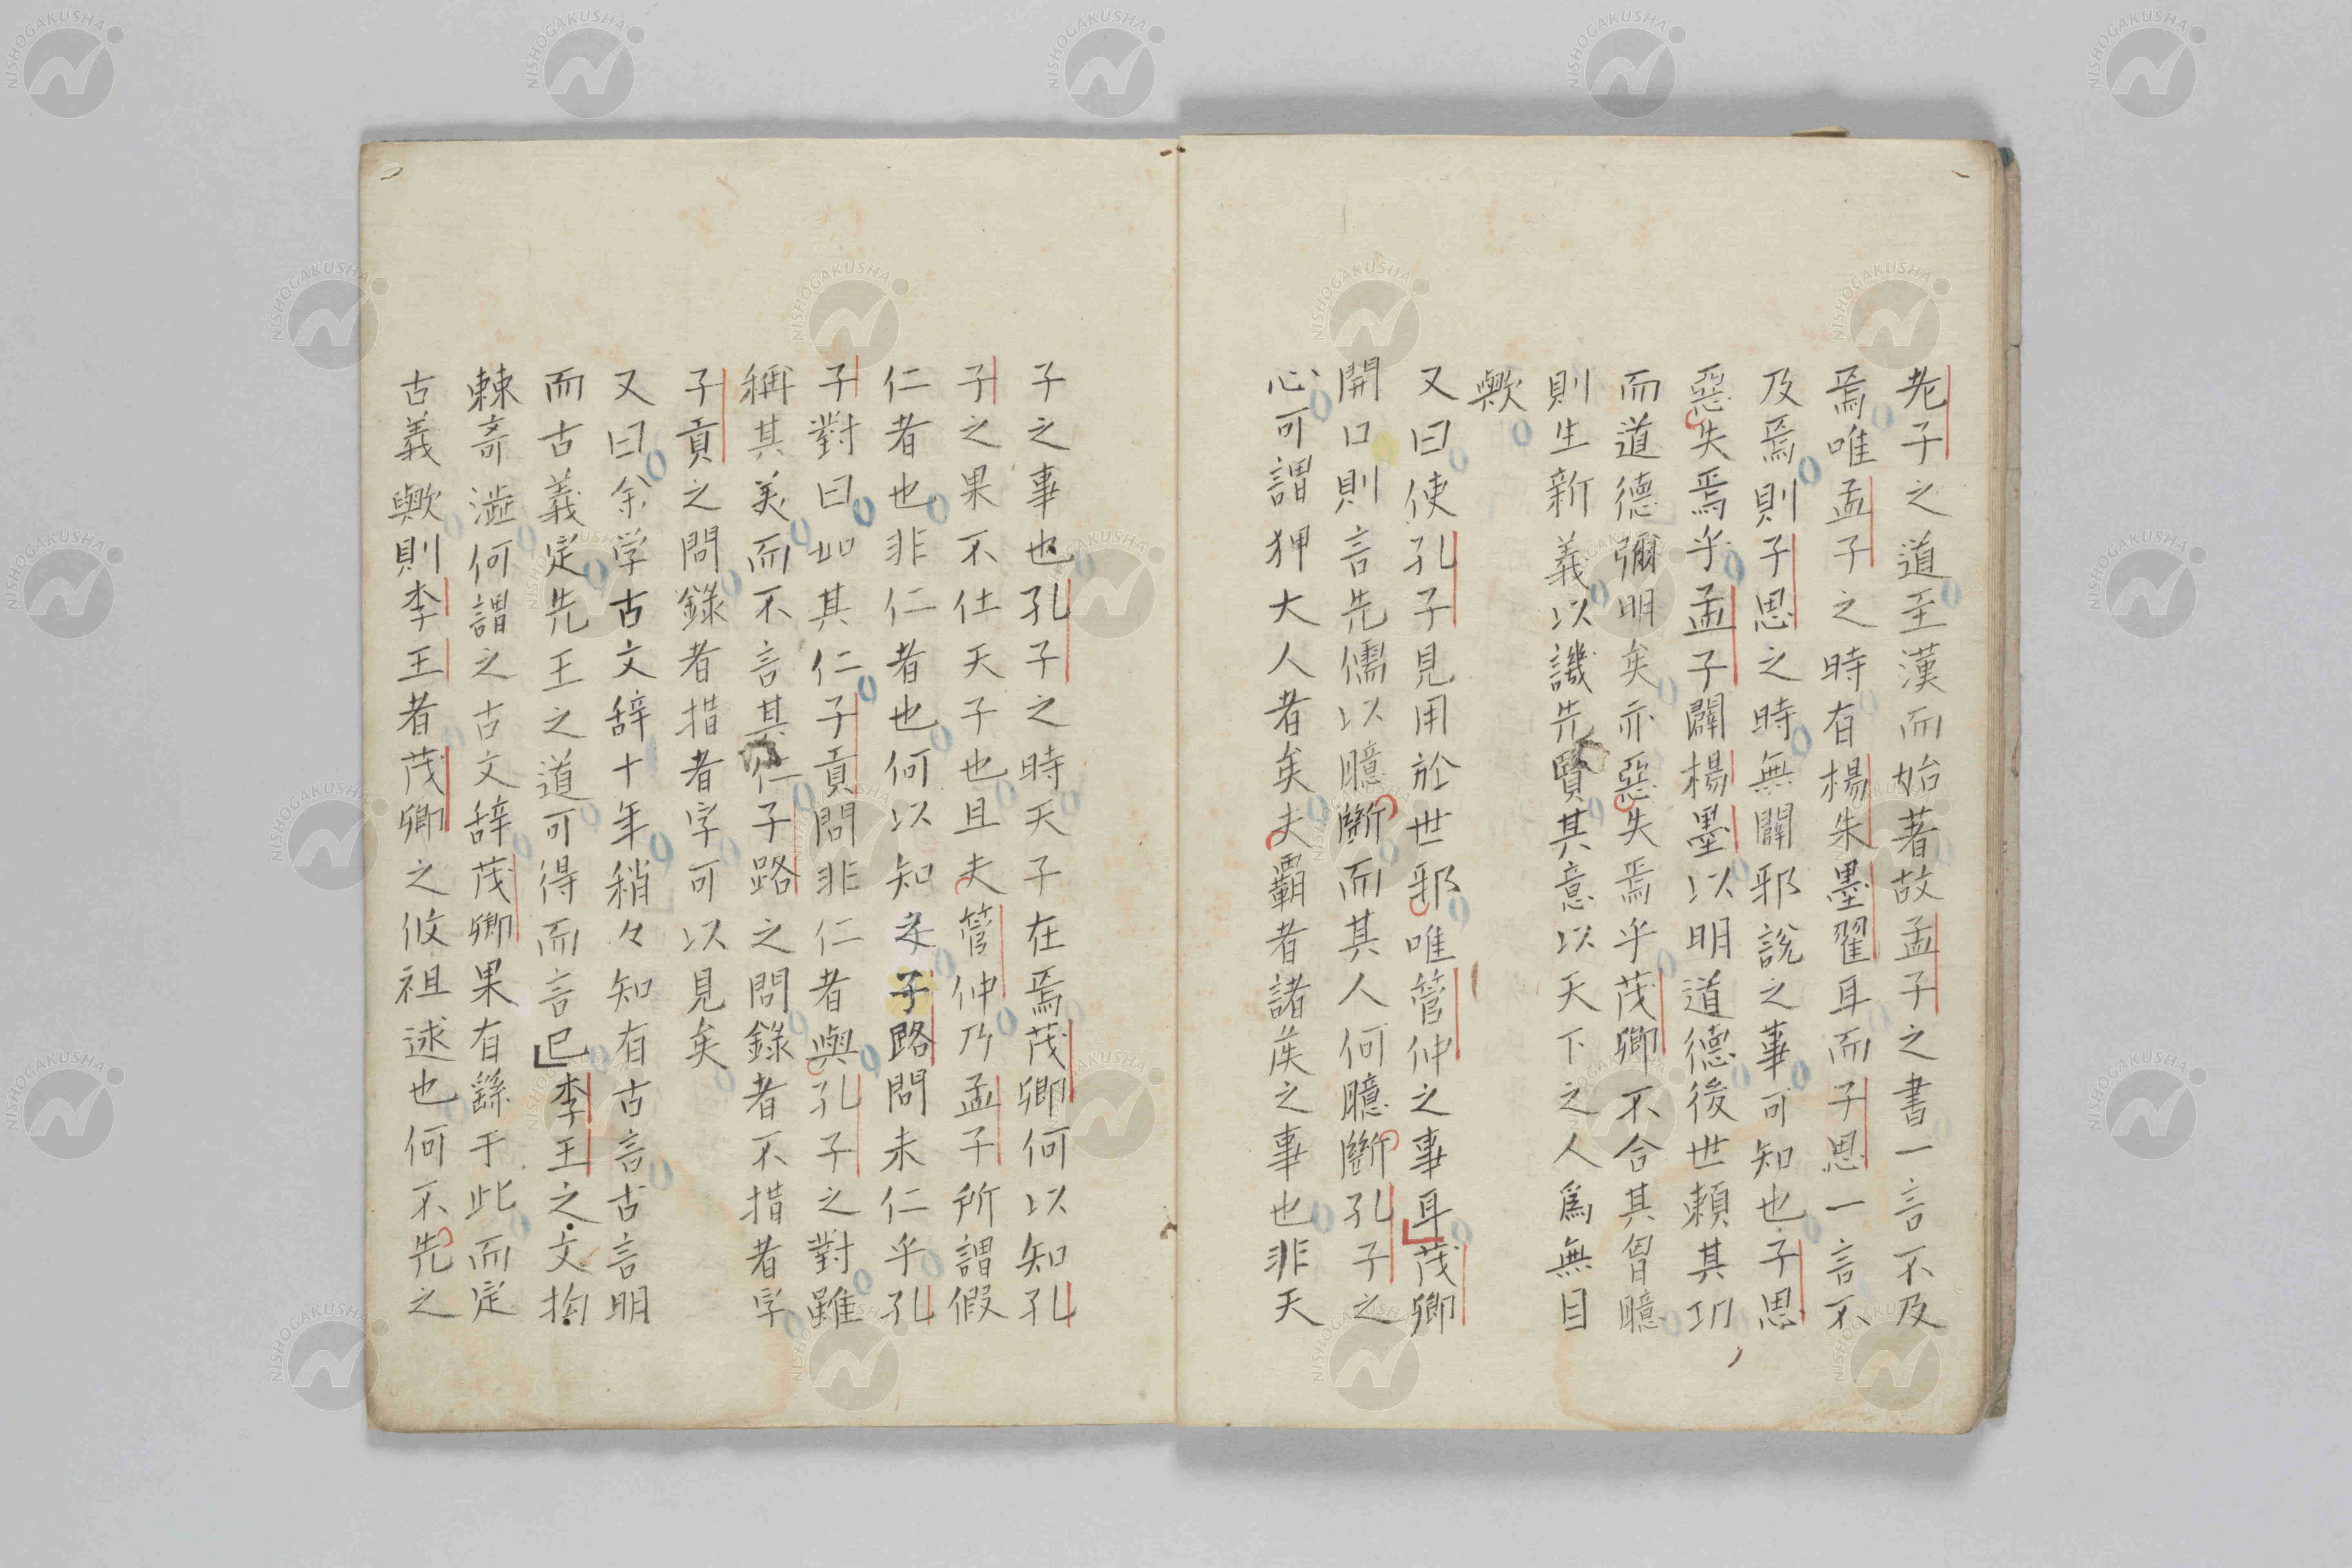 老子之道至漢而始著故孟子之書一言不及
焉唯孟子之時有楊朱墨翟耳而子思一言不
及焉則子思之時無闢邪說之事可知也子思
惡失焉乎孟子闢楊墨以明道德後世賴其功
而道德彌明矣亦惡失焉乎茂卿不合其胷臆
則生新義以譏先賢其意以天下之人爲無目
歟
又曰使孔子見用於世邪唯管仲之事耳茂卿
開口則言先儒以臆斷而其人何臆斷孔子之
心可謂狎大人者矣夫霸者諸侯之事也非天
子之事也孔子之時天子在焉茂卿何以知孔
子之果不仕天子也且夫管仲乃孟子所謂假
仁者也非仁者也何以知之子路問未仁乎孔
子對曰如其仁子貢問非仁者與孔子之對雖
稱其美而不言其仁子路之問錄者不措者字
子貢之問錄者措者字可以見矣
又曰余学古文辞十年稍々知有古言古言明
而古義定先王之道可得而言已李王之文拘
棘奇澁何謂之古文辞茂卿果有繇于此而定
古義歟則李王者茂卿之攸祖述也何不先之
NISHOGAKUSHA